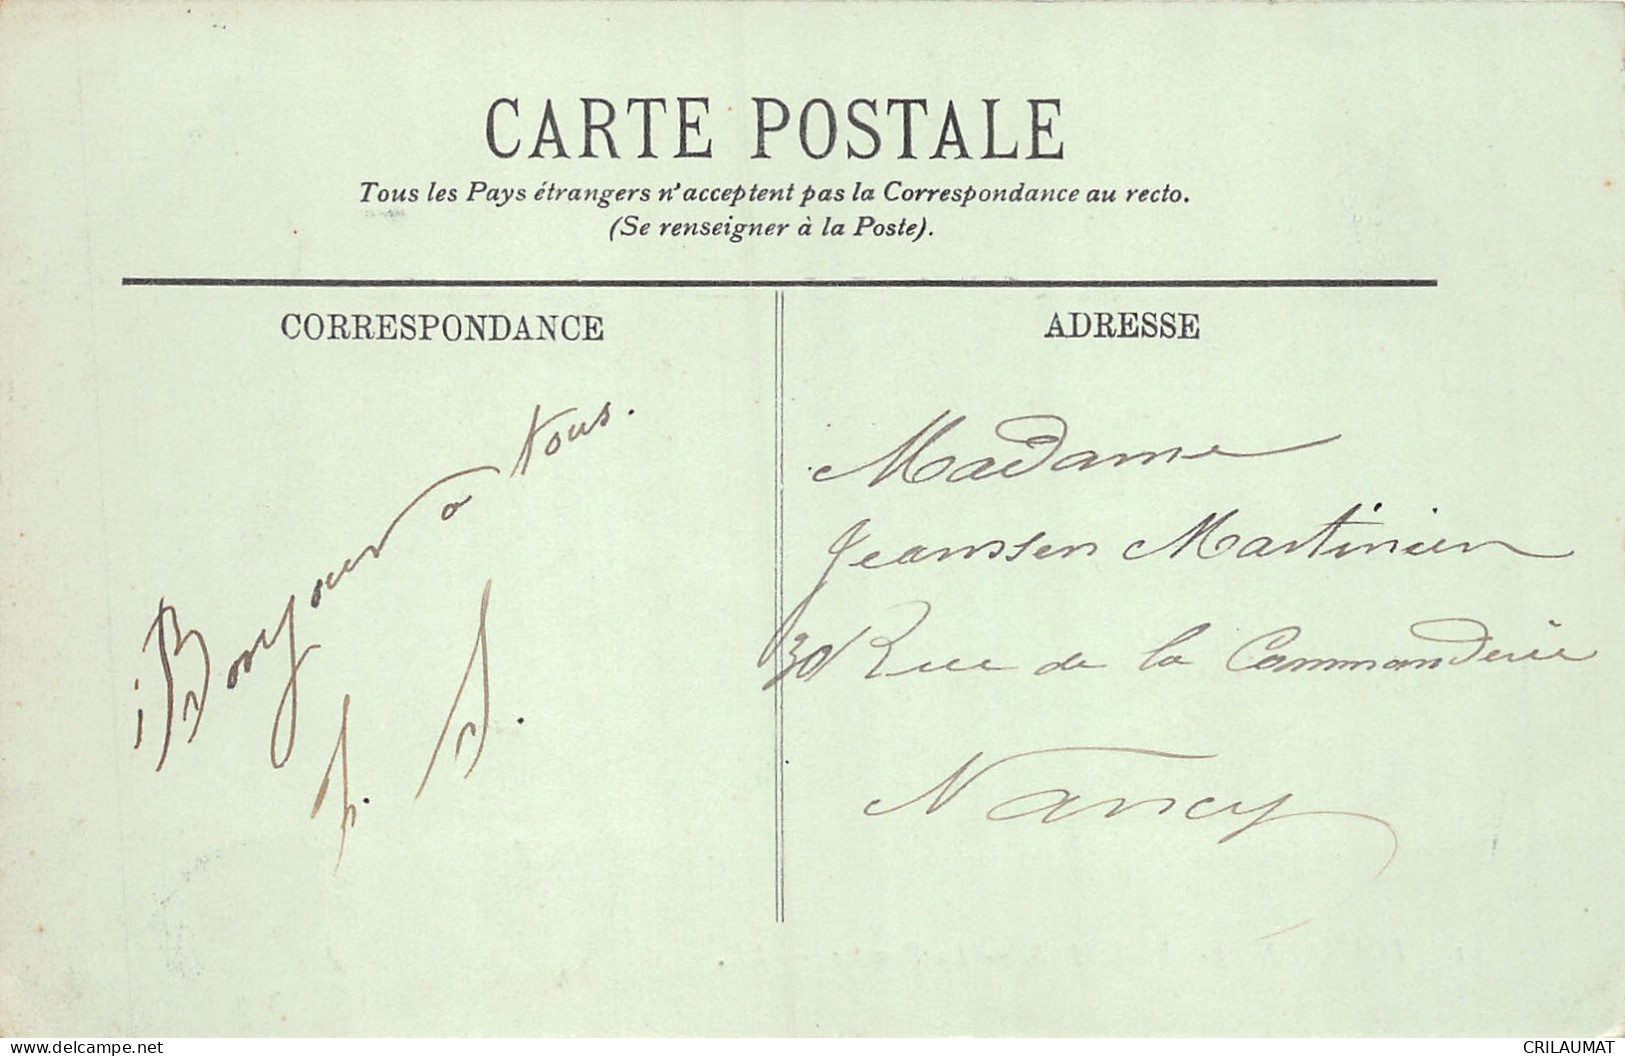 CARTE POSTALE
Tous les Pays étrangers n'acceptent pas la Correspondance au recto.
(Se renseigner à la Poste).
CORRESPONDANCE
Bonjour a tous.
ADRESSE
Madame
Jeanssen Martinien
30 Rue de la Commanderie
Nancy
www.delcampe.net
CRILAUMAT